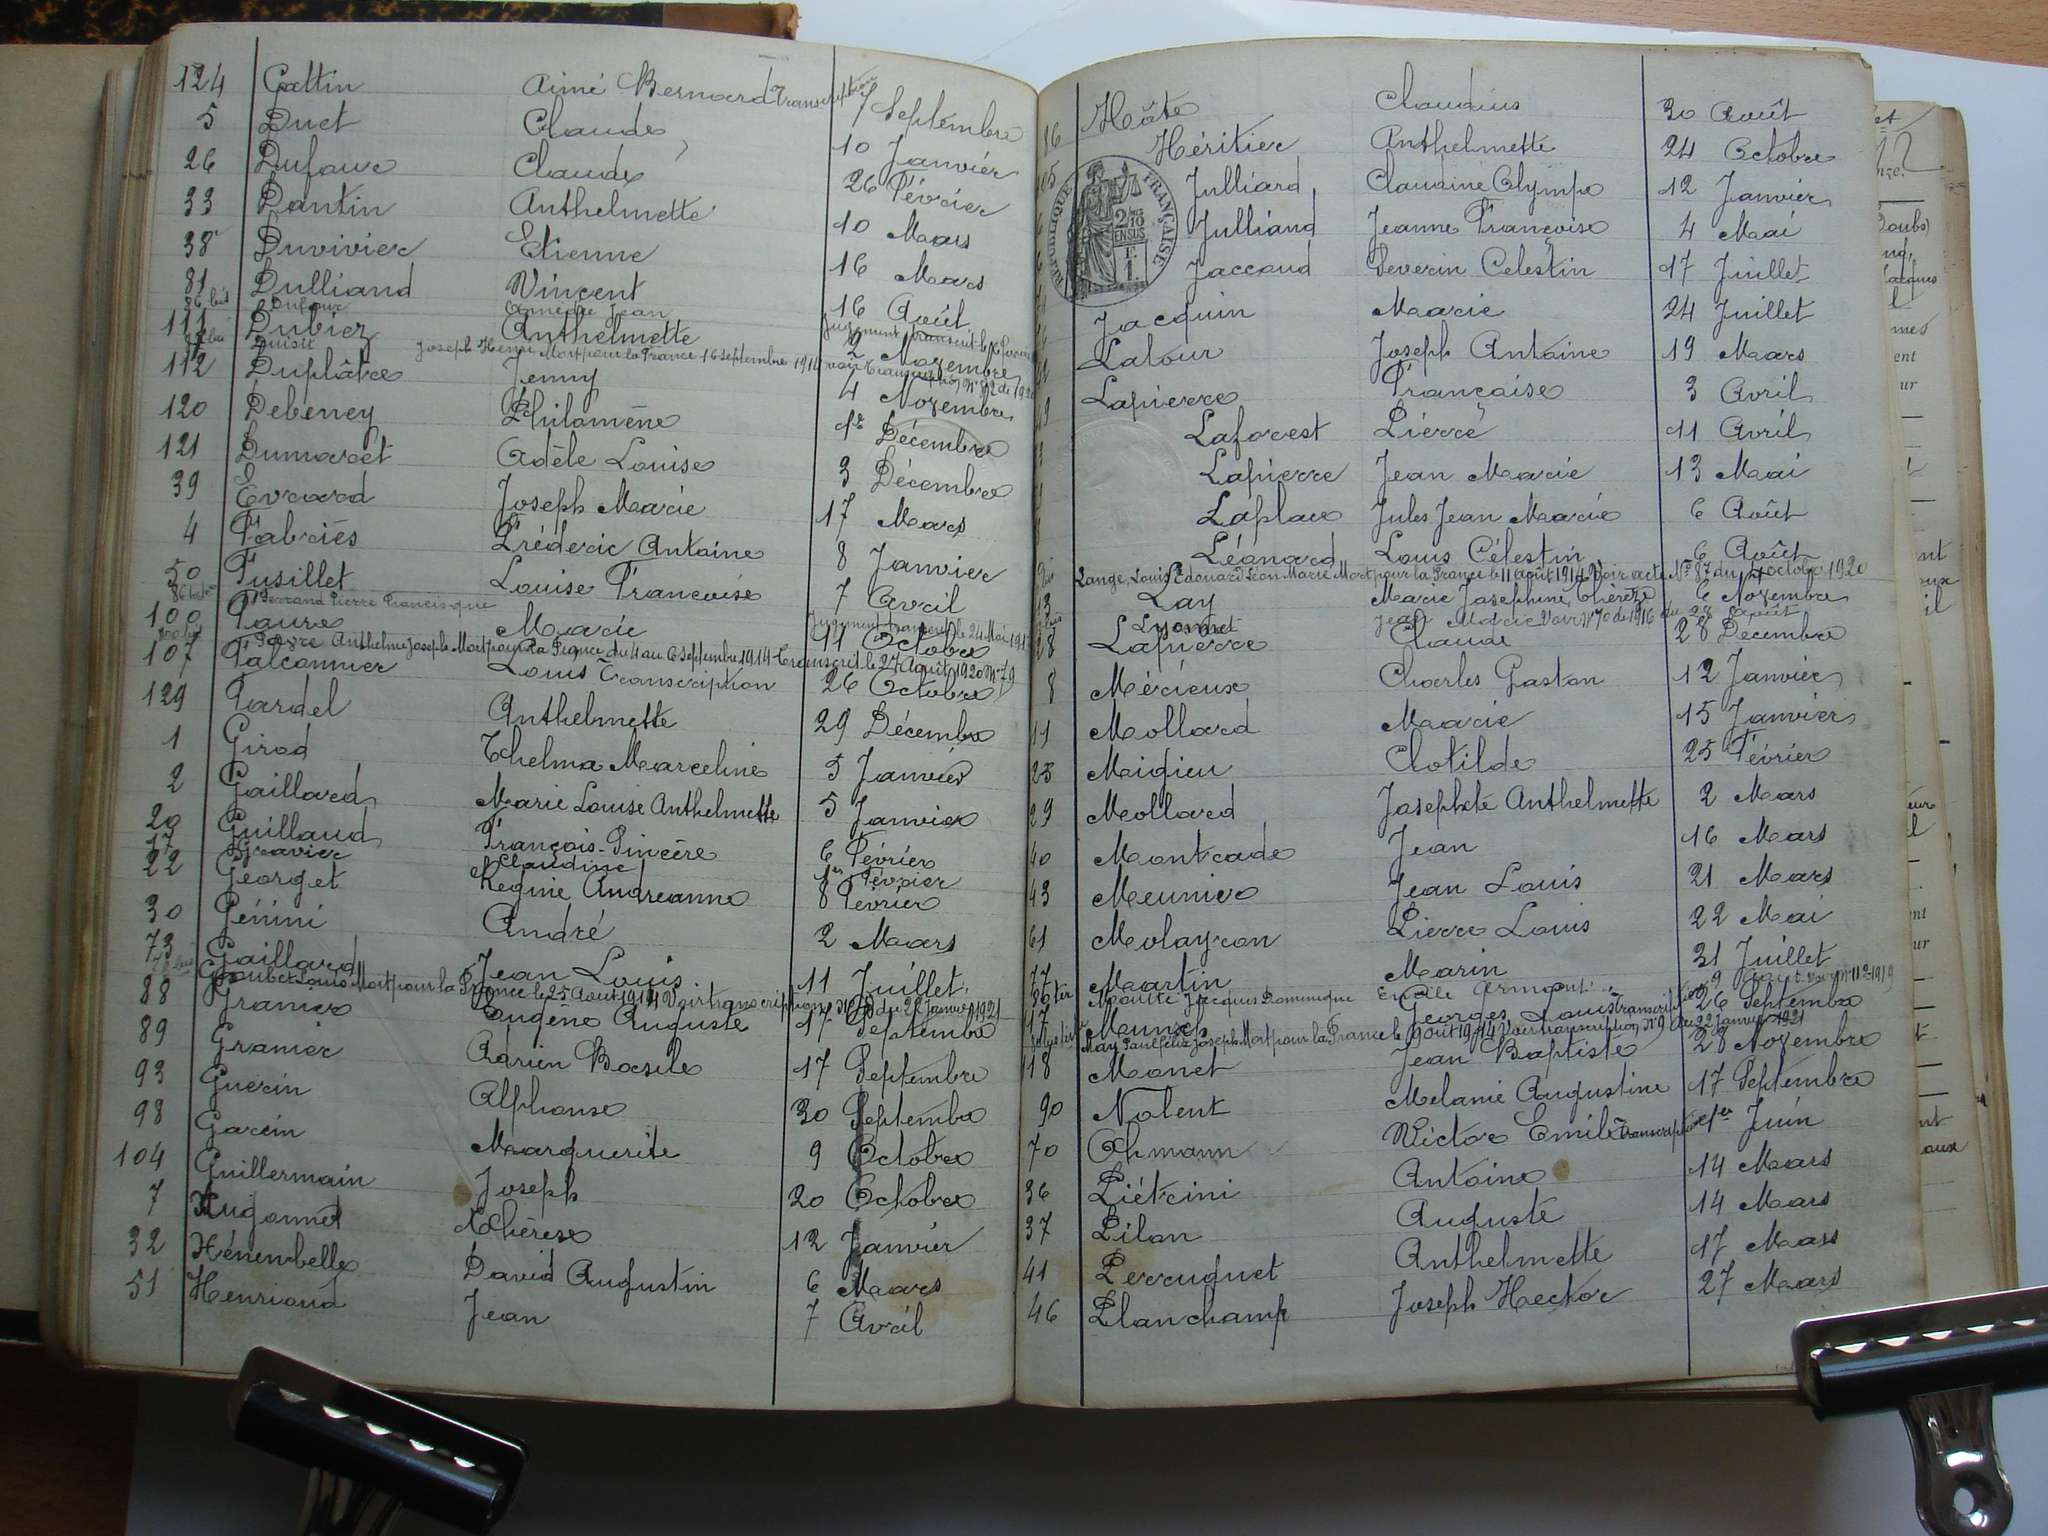 124 Cattin Aimé Bernard Transcription 7 Septembre
5 Duct Claude 10 Janvier
26 Dufour Claude 26 Février
33 Dantin Anthelmette 10 Mars
38 Duvivier Etienne 16 Mars
81 Dulliand Vincent 16 Août
86 bis Dufour Amédée Jean Jugement transcrit le
111 Dubiez Anthelmette 2 Novembre
Duisit Joseph Henri Mort pour la France 16 septembre 1914 voir Transcription N° 92 de 1920
112 Duplâtre Jenny 4 Novembre
120 Debeney Philomène 1er Décembre
121 Dumarest Adèle Louise 3 Décembre
39 Evrard Joseph Marie 17 Mars
4 Fabriés Fréderic Antoine 8 Janvier
50 Fusillet Louise Françoise 7 Avril
86 Ferrand Pierre Francisque Jugement transcrit le 24 Mai 191
100 Faure Marie 11 Octobre
100 bis Favre Anthelme Joseph Mort pour la France du 4 au 6 Septembre 1914 Transcrit le 27 Août 1920 N° 79
107 Falconnier Louis Transcription 26 Octobre
129 Fardel Anthelmette 29 Décembre
1 Girod Thelma Marceline 5 Janvier
2 Gaillard Marie Louise Anthelmette 5 Janvier
20 Guilland François-Sincère 6 Février
17 Gravier Claudine 1er Février
22 Georget Regnie Andréanne 8 Février
30 Génini André 2 Mars
73 Gaillard Jean Louis 11 Juillet
Goubet Louis Mort pour la France le 25 Août 1914 Voir transcription N° du 22 Janvier 1921
88 Granier Eugène Auguste 17 Septembre
89 Granier Adrien Basile 17 Septembre
93 Guerin Alphonse 30 Septembre
98 Garein Marguerite 9 Octobre
104 Guillermain Joseph 20 Octobre
7 Hugonnet Thérèse 12 Janvier
32 Hénenbelle David Augustin 6 Mars
51 Henriand Jean 7 Avril
16 Hôte Claudius 30 Août
Héritier Anthelmette 24 Octobre
Julliard Claudine Olympe 12 Janvier
Julliand Jeanne Françoise 4 Mai
Jaccoud Severin Celestin 17 Juillet
RÉPUBLIQUE FRANÇAISE
2/10 EN SUS
F. 1.
Jacquin Marie 24 Juillet
Latour Joseph Antoine 19 Mars
Lapierre Françoise 3 Avril
Laforest Pierre 11 Avril
Lapierre Jean Marie 13 Mai
Laplace Jules Jean Marie 6 Août
Léonard Louis Célestin 6 Août
Lange, Louis Edouard Léon Marie Mort pour la France le 11 août 1914 Voir acte N° 87 du 4 octobre 1920
Lay Marie Josephine Thérèze 6 Novembre
Lyonnet Jean Marie Voir N° 70 de 1916 du 28 Août
28 Lapierre Claude 28 Décembre
8 Mérieux Charles Gaston 12 Janvier
11 Mollard Marie 15 Janvier
25 Midieu Clotilde 25 Février
29 Mollard Josephte Anthelmette 2 Mars
40 Montcade Jean 16 Mars
43 Meunier Jean Louis 21 Mars
61 Molayron Pierre Louis 22 Mai
77 Martin Marin 31 Juillet
86 ter Moutte Jacques Dominique Emile Armont 9 Août voir N° 112-1919
17 Mounoh Georges Louis Transcription 26 Septembre
May Paul Félix Joseph Mort pour la France le Août 1914 Voir transcription N° 9 du 22 Janvier 1921
118 Monet Jean Baptiste 28 Novembre
90 Nolent Melanie Augustine 17 Septembre
70 Ohmann Victor Emile Transcription 1er Juin
36 Piétrini Antoine 14 Mars
37 Pilan Auguste 14 Mars
41 Perruquet Anthelmette 17 Mars
46 Planchamp Joseph Hector 27 Mars